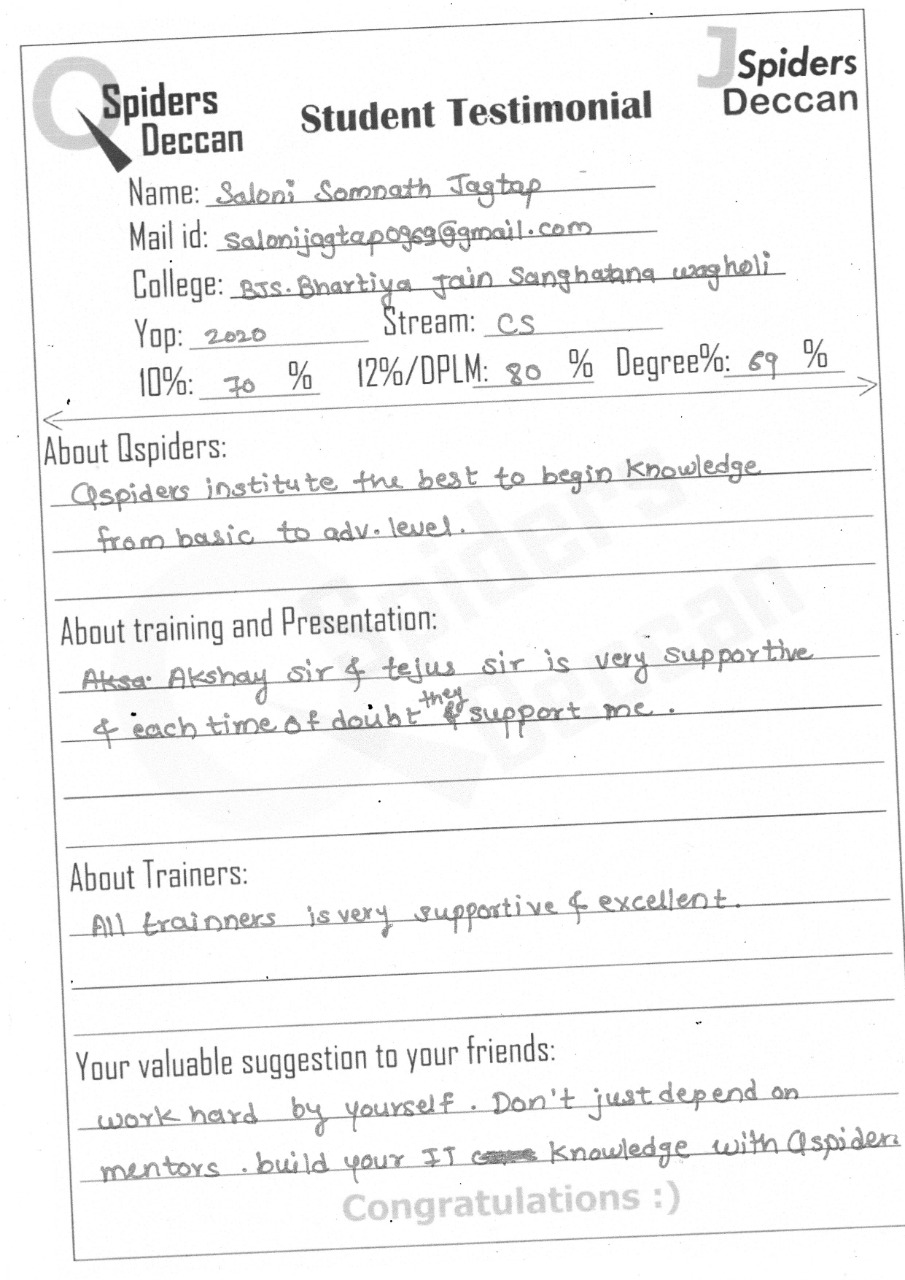 QSpiders Deccan
Student Testimonial
JSpiders Deccan
Name: Saloni Somnath Jagtap
Mail id: salonijagtap0969@gmail.com
College: BJS. Bhartiya Jain Sanghatana wagholi
Yop: 2020 Stream: CS
10%: 70 % 12%/DPLM: 80 % Degree%: 69 %
About Qspiders:
Qspiders institute the best to begin knowledge
from basic to adv. level.
About training and Presentation:
Aksa. Akshay sir & tejus sir is very supportive
& each time of doubt they support me.
About Trainers:
All trainners is very supportive & excellent.
Your valuable suggestion to your friends:
work hard by yourself. Don't just depend on
mentors. build your IT knowledge with Qspiders
Congratulations :)